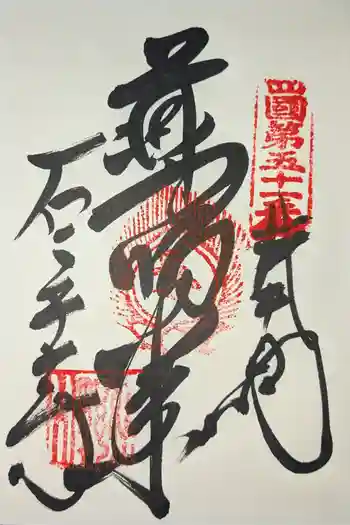 四國第五十一番
奉納
薬師尊
石手寺